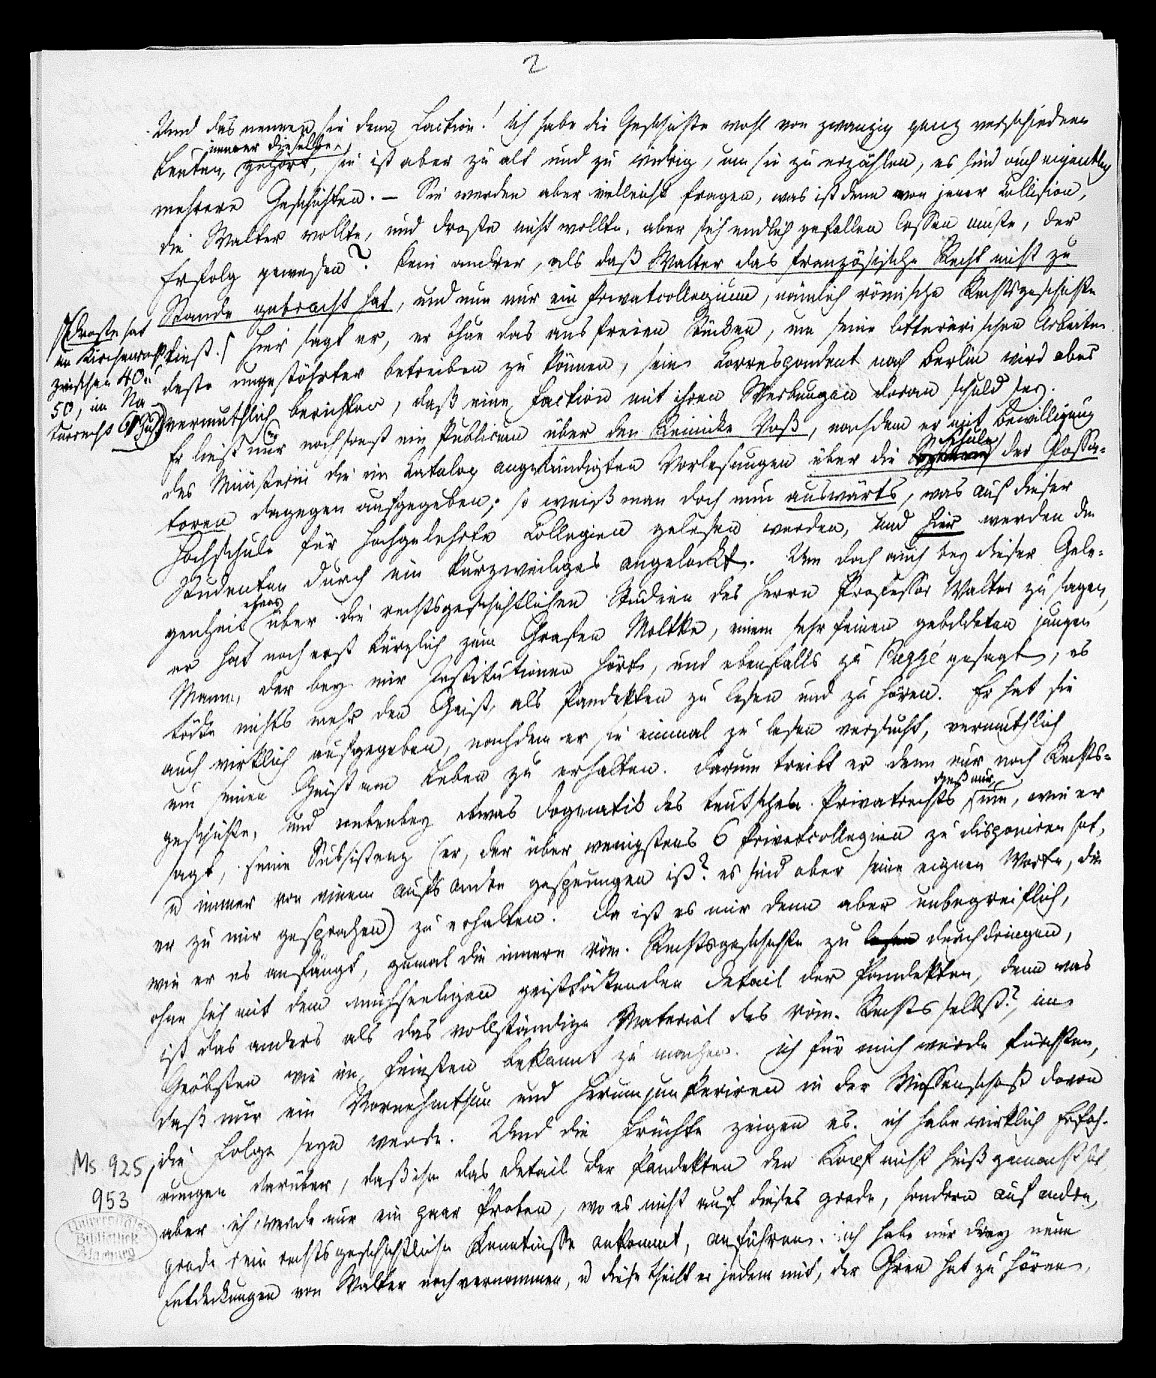 2
Und das nennen sie denn Faction! Ich habe die Geschichte wohl von zwanzig ganz verschiednen
immer dieselbe
Leuten, gehört, sie ist aber zu alt und zu widrig, um sie zu erzählen, es sind auch eigentlich
mehrere Geschichten. – Sie werden aber vielleicht fragen, was ist denn von jener Collision,
die Walter wollte, und Droste nicht wollte, aber sich endlich gefallen lassen muste, der
Erfolg gewesen? Kein andrer, als daß Walter das französische Recht nicht zu
Stande gebracht hat, und nun nur ein Privatcollegium, nämlich römische Rechtsgeschichte
ließt. Hier sagt er, er thue das aus freien Stücken, um seine litterärischen Arbeiten
Droste hat
im Kirchenrecht
zwischen 40 u
50, im Na-
turrecht
desto ungestöhrter betreiben zu können, sein Correspondent nach Berlin wird aber
vermuthlich berichten, daß eine Faction mit ihren Werbungen daran schuld sey.
Er ließt nur noch ein Publicum über den Reinicke Voß, nachdem er mit Bewilligung
des Ministerii die im Katalog angekündigten Vorlesungen über die Schule der Glossa-
toren dagegen aufgegeben; so weiß man doch nun auswärts, was auf dieser
Hochschule für hochgelehrte Collegien gelesen werden, und hier werden die
Studenten durch ein kurzweiliges angelockt. Um doch auch bey dieser Gele-
etwas
genheit über die rechtsgeschichtlichen Studien des Herrn Professor Walter zu sagen,
er hat noch erst kürzlich zum Grafen Moltke, einem sehr feinen gebildeten jungen
Mann, der bey mir Institutionen hört, und ebenfalls zu Puggé gesagt, es
tödte nichts mehr den Geist, als Pandekten zu lesen und zu hören. Er hat sie
auch wirklich aufgegeben, nachdem er sie einmal zu lesen versucht, vermuthlich
um seinen Geist am Leben zu erhalten. Darum treibt er denn nur noch Rechts-
geschichte, und nebenbey etwas Dogmatik des teutschen Privatrechts um, wie er
sagt, seine Subsistenz (er, der über wenigstens 6 Privatcollegien zu disponiren hat,
u immer von einem aufs andre gesprungen ist? es sind aber seine eignen Worte, die
er zu mir gesprochen) zu erhalten. Da ist es mir denn aber unbegreiflich,
wie er es anfängt, zumal die innere röm. Rechtsgeschichte zu durchdringen,
ohne sich mit dem mühseeligen geisttödtenden Detail der Pandekten, denn was
ist das anders als das vollständige Material des röm. Rechts selbst?, im
Gröbsten wie im Feinsten bekannt zu machen. Ich für mich würde fürchten,
daß nur ein Vornehmthun und Herumjunkeriren in der Wissenschaft davon
die Folge seyn werde. Und die Früchte zeigen es. Ich habe wirklich Erfah-
rungen darüber, daß ihm das Detail der Pandekten den Kopf nicht heiß gemacht hat
aber ich werde nur ein paar Proben, wo es nicht auf dieses grade, sondern auf andre,
grade rein rechtsgeschichtliche Kenntnisse ankommt, anführen. Ich habe nur drey neue
Entdeckungen von Walter noch vernommen, u diese theilt er jedem mit, der Ohren hat zu hören,
Ms 925,
953
Universitäts-
Bibliothek
Marburg